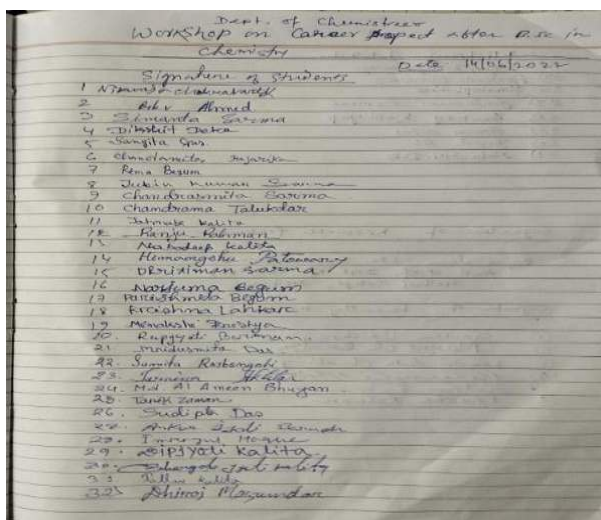 Dept. of Chemistreer
Workshop on Career Aspect after B.Sc in
Chemistry
Date 14/06/2022
Signature of Students
1
2 Ahmed
3 Simanta Sarma
4 Dikshit Deka
5 Sangita Das
6 Chandamita Hajarika
7 Rema Begum
8 Jubin Kuman Sarma
9 Chandrasmita Sarma
10 Chandrama Talukdar
11 Kalita
12 Ranju Rahman
13 Nabadeep Kalita
14 Himangshu Patowary
15 Dhritiman Sarma
16 Nartuma Begum
17 Begum
18 Krishna Lahkar
19
20. Rupjyoti Barman
21. Mridusmita Das
22. Sumita Rajbongshi
23. Akhtar
24. Md. Al Ameen Bhuyan
25. Tarik Zaman
26. Sudipta Das
27. Jyoti
28. Hoque
29. Dipjyoti Kalita
30. Kality
31 Kalita
32) Dhiroj Mazumdar